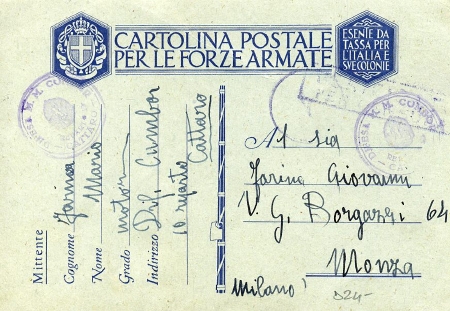 CARTOLINA POSTALE
PER LE FORZE ARMATE
ESENTE DA
TASSA PER
L'ITALIA E
SUE COLONIE
Mittente
Cognome Farina
Nome Mario
Grado
Indirizzo Dif. Cumbor
10 reparto Cattaro
Al sig
Farina Giovanni
V. G. Borgazzi 64
Monza
Milano
D24-